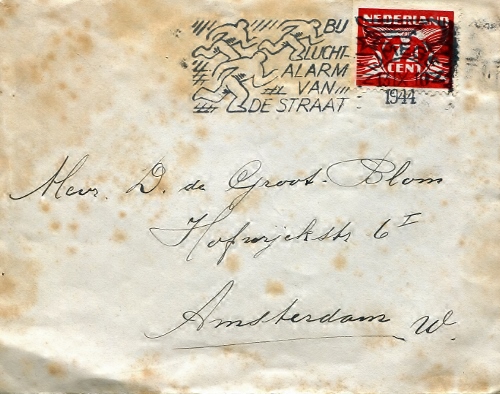 BIJ
LUCHT
ALARM
VAN
DE STRAAT
NEDERLAND
7½
CENT
1944
Mevr. D. de Groot-Blom
Hofwijckstr 6 I
Amsterdam W.